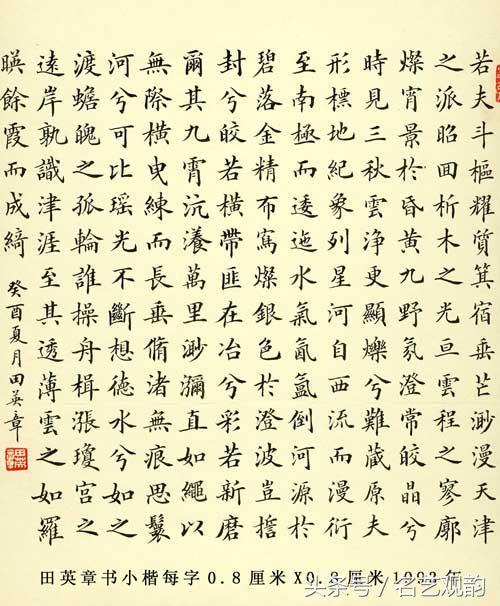 若夫斗樞耀質箕宿垂芒渺漫天津
之派昭囬析木之光亘雲程之寥廓
燦宵景於昏黃九野氛澄常皎晶兮
時見三秋雲浄更顯爍兮難藏原夫
形標地紀象列星河自西流而漫衍
至南極而逶迤水氣氤氳倒河源於
碧落金精布寫燦銀色於澄波豈
封兮皎若橫帶匪在冶兮彩若新磨
爾其九霄沆瀁萬里渺瀰直如繩以
無際橫曳練而長垂脩渚無痕思鬟
河兮可比瑶光不斷想德水兮如之
渡蟾魄之孤輪誰操舟楫漲瓊宮之
遠岸孰識津涯至其透薄雲之如羅
暎餘霞而成綺
癸酉夏月田英章
田英章书小楷每字0.8厘米X0.8厘米1993年
头条号/名艺观韵